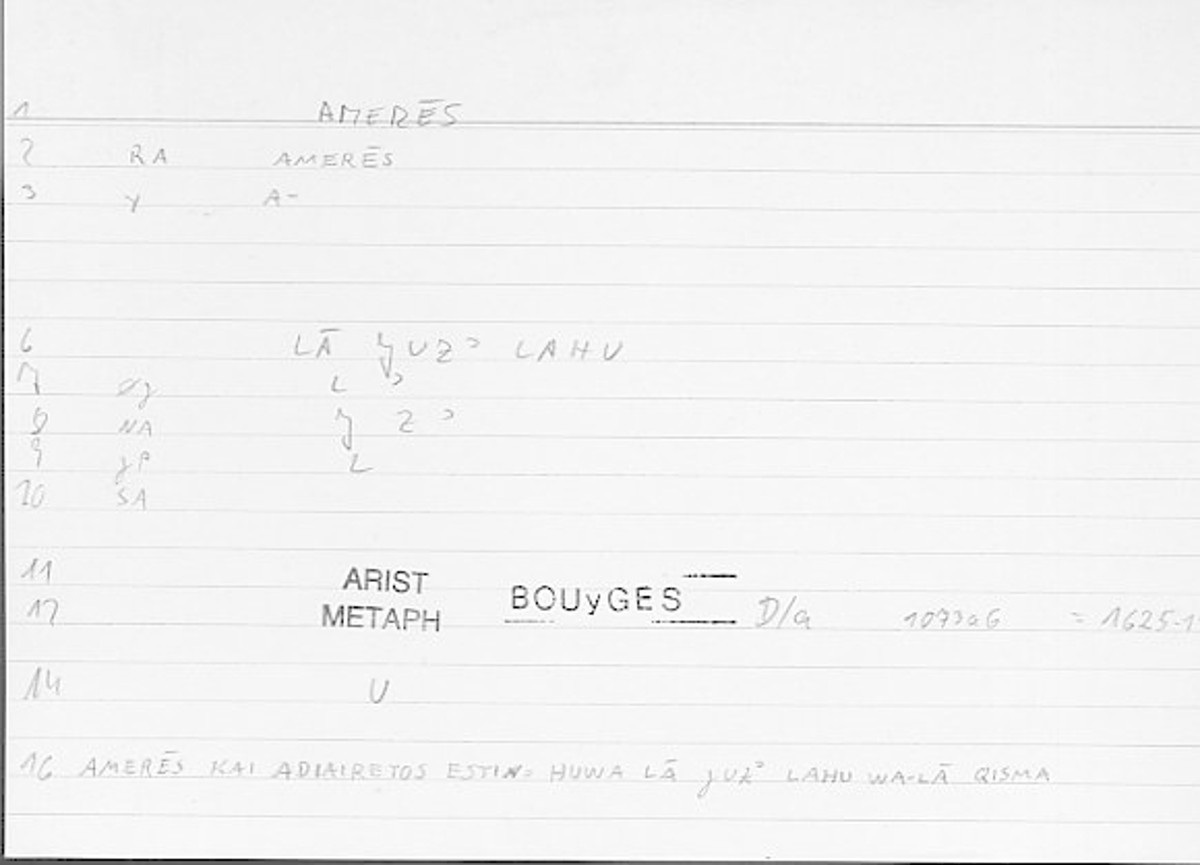 1 AMERĒS
2 RA AMERĒS
3 y A-
6 LĀ ɣUZʾ LAHU
7 L ʾ
8 NA ɣ Z ʾ
9 ɣP L
10 SA
11 ARIST
12 METAPH BOUyGES D/a 1073a6 = 1625-1
14 U
16 AMERĒS KAI ADIAIRETOS ESTIN= HUWA LĀ ɣUZʾ LAHU WA-LĀ QISMA